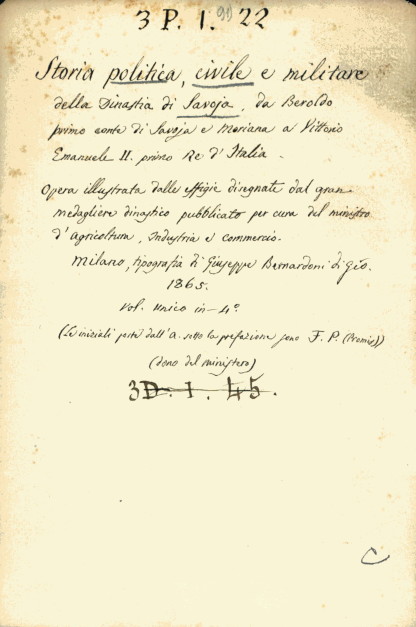 3 P. 1. 22
91
Storia politica, civile e militare
della Dinastia di Savoja, da Beroldo
primo conte di Savoja e Moriana a Vittorio
Emanuele II. primo Re d'Italia.
Opera illustrata dalle effigie disegnate dal gran
medagliere dinastico pubblicato per cura del ministro
d'Agricoltura, Industria e Commercio.
Milano, tipografia di Giuseppe Bernardoni di Gio.
1865.
Vol. unico in-4°
(Le iniziali poste dall'a. sotto la prefazione sono F. P. (Promis))
(dono del ministero)
3D. 1. 45.
C